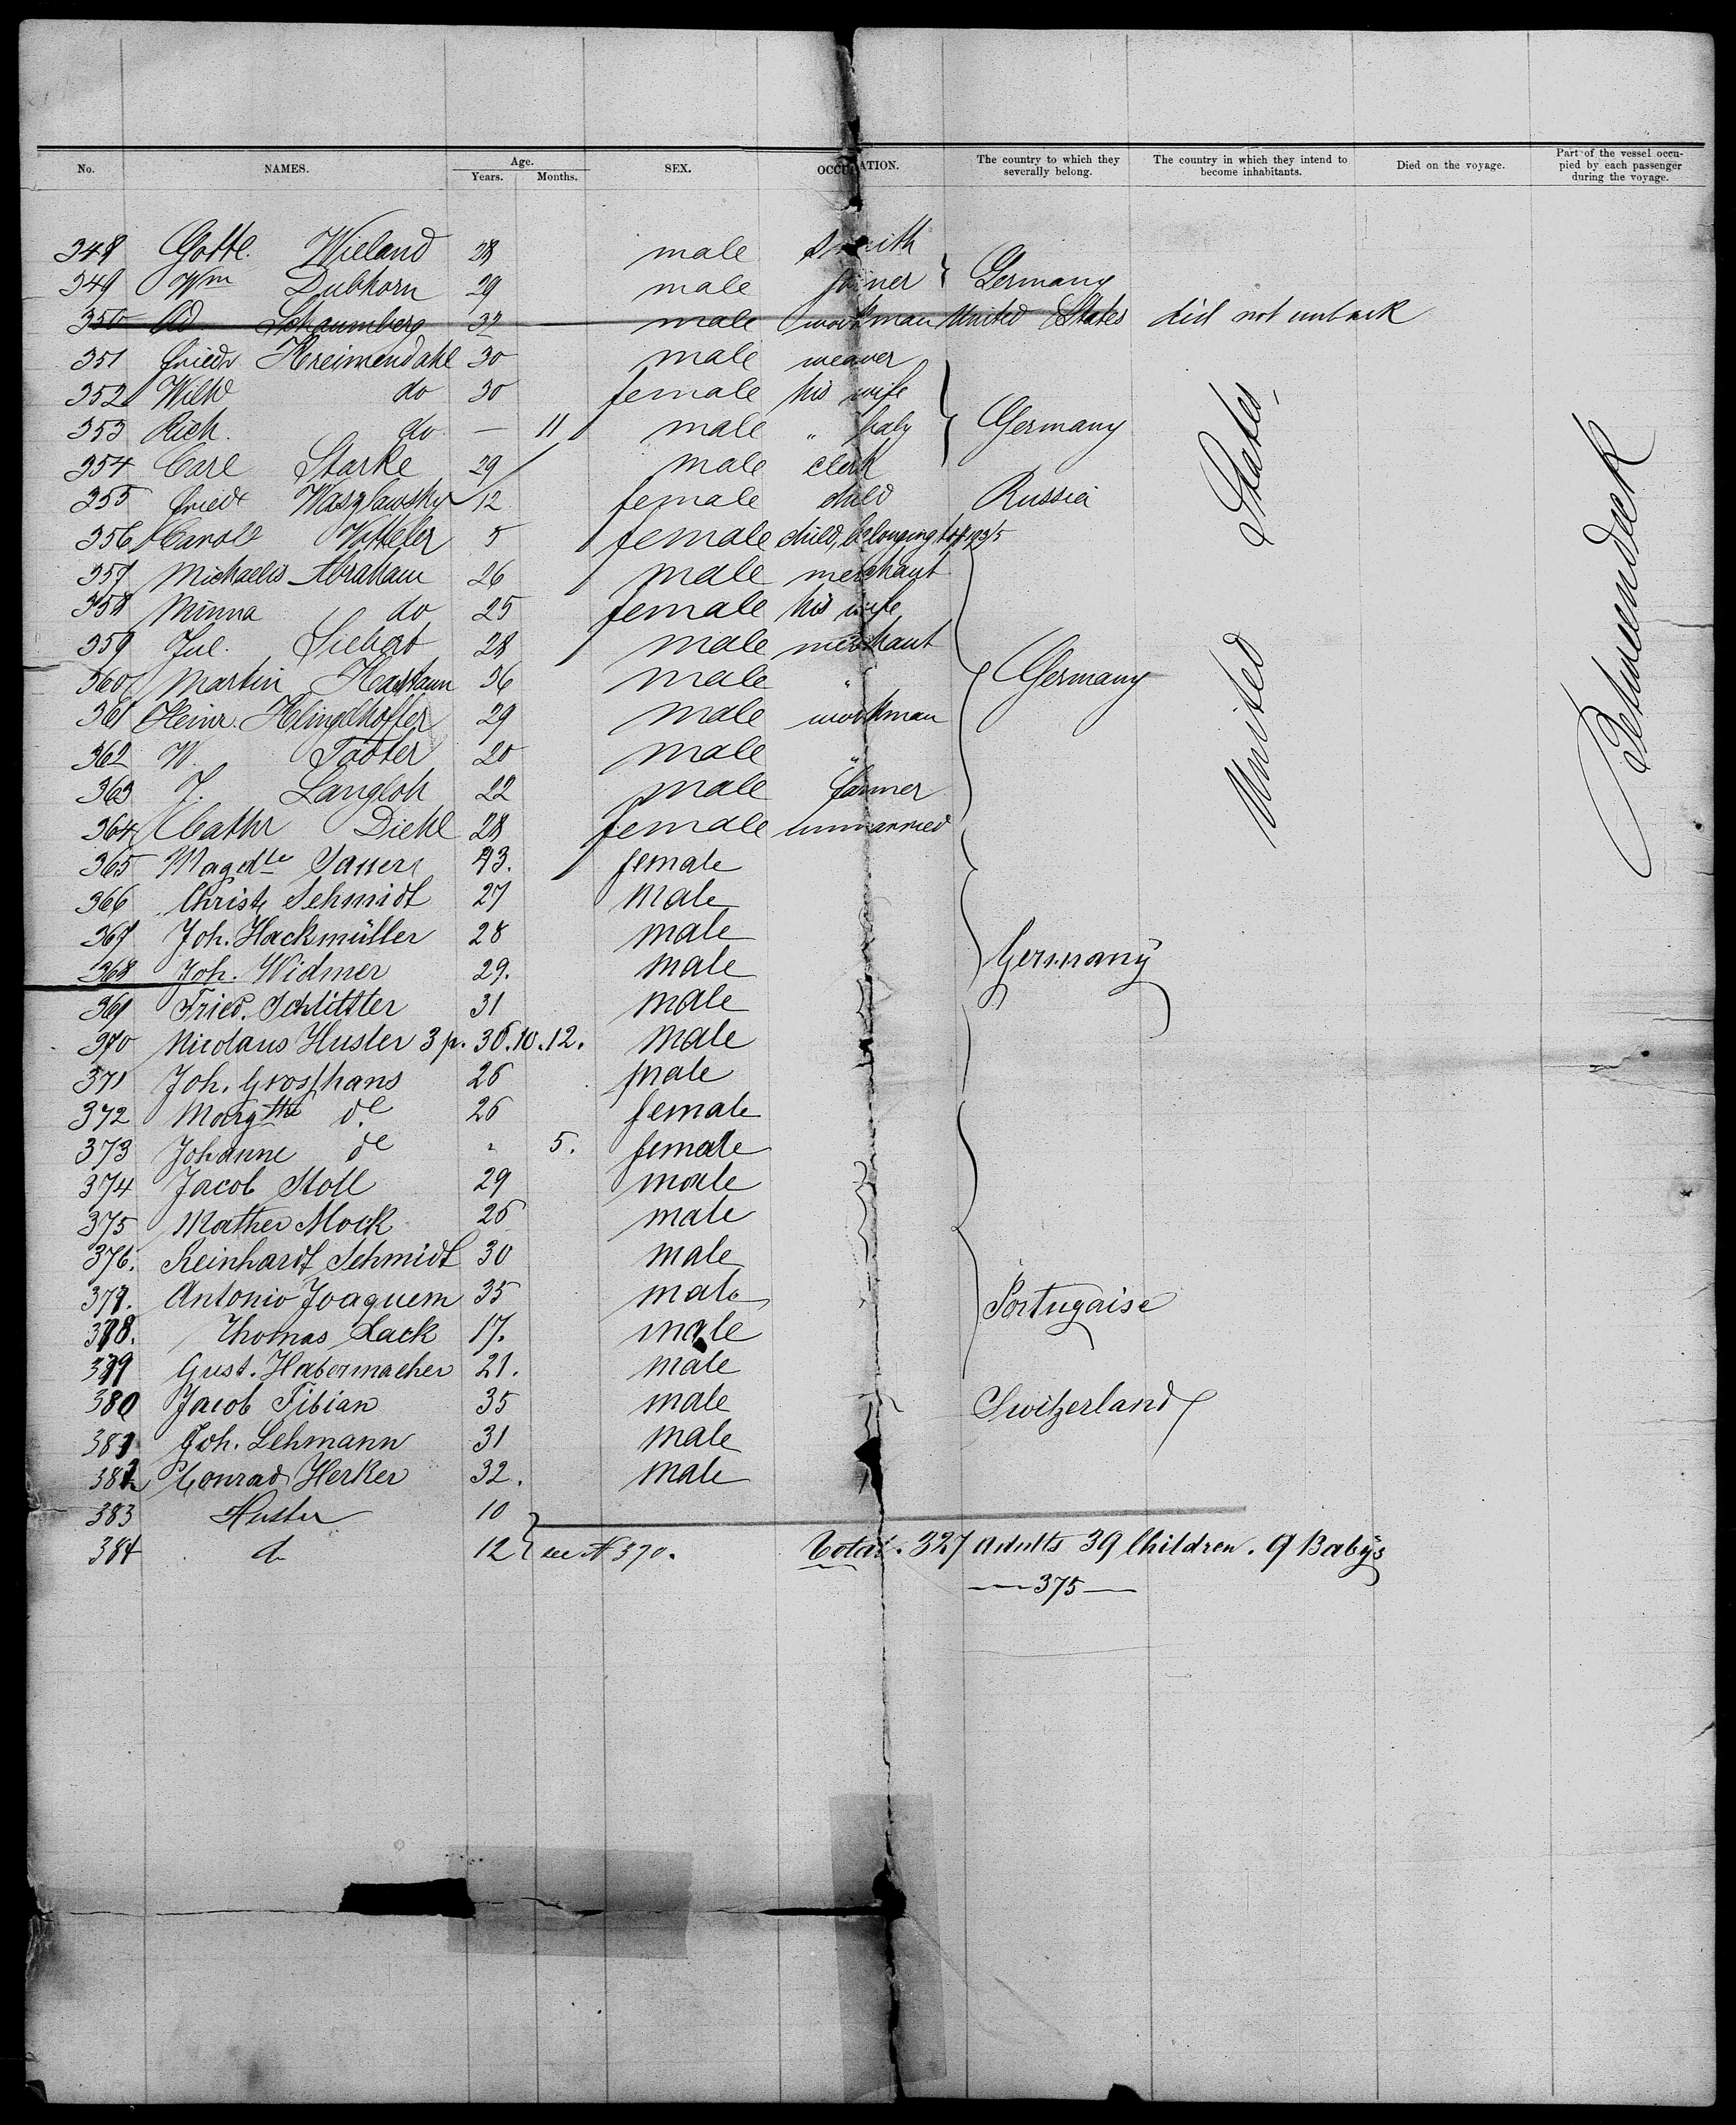 No. NAMES. Age. Years. Months. SEX. OCCUPATION. The country to which they severally belong. The country in which they intend to become inhabitants. Died on the voyage. Part of the vessel occupied by each passenger during the voyage.
348 Gottl. Wieland 28 male smith
349 Wm Dubhorn 29 male joiner Germany
350 Ad. Schaumberg 32 male workman United States did not embark
351 Friedr Kreimendahl 30 male weaver
352 Wilh do 30 female his wife
353 Rich. do — 11 male " baby Germany
354 Carl Starke 29 male clerk
355 Fried Waszlawsky 12 female child Russia
356 Carol Vitteler 5 female child, belonging to
357 Michaelis Abraham 26 male merchant
358 Minna do 25 female his wife
359 Jul. Siebert 28 male merchant
360 Martin 36 male " Germany
361 Heinr. Klingelhoffer 29 male workman
362 W. 20 male "
363 J. Langloh 22 male farmer
364 Cathr Diehl 28 female unmarried
United States
Betweendeck
365 Magdte Sauer 43. female
366 Christ. Schmidt 27 male
367 Joh. Hackmüller 28 male
368 Joh. Widmer 29. male Germany
369 Fried. Schlittler 31 male
370 Nicolaus Huster 3 p. 36.10.12. male
371 Joh. Grosshans 26 male
372 Margthe do 26 female
373 Johanne do " 5. female
374 Jacob Stoll 29 male
375 Mather Mock 26 male
376. Reinhardt Schmidt 30 male
377. Antonio Joaquem 35 male Portugaise
378. Thomas Lack 17. male
379 Gust. Habermacher 21. male
380 Jacob Fibian 35 male Switzerland
381 Joh. Lehmann 31 male
382 Conrad Herker 32. male
383 Huster 10
384 do 12 see N 370. Total. 327 adults 39 Children. 9 Babys
—375—